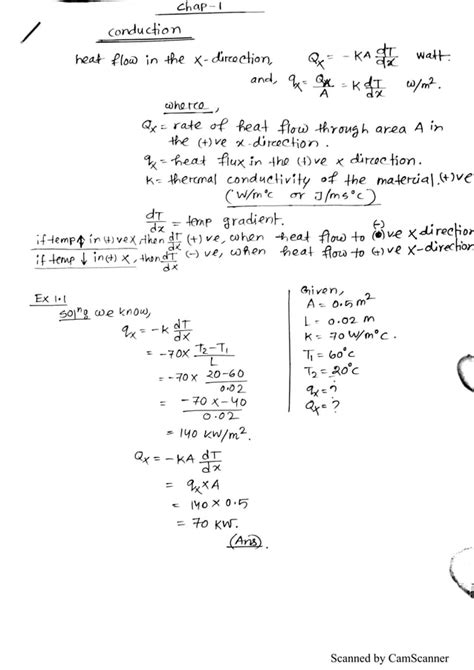 Chap-1
conduction
heat flow in the x-direction, Qx = -KA dT/dx watt.
and, qx = Qx/A = K dT/dx w/m².
where,
Qx = rate of heat flow through area A in
the (+)ve x-direction.
qx = heat flux in the (+)ve x direction.
K = thermal conductivity of the material (+)ve
(W/m°c or J/ms°c)
dT/dx = temp gradient.
if temp ↑ in (+)ve x, then dT/dx (+) ve, when heat flow to (-)ve x direction
if temp ↓ in (+) x, then dT/dx (-) ve, when heat flow to (+)ve x-direction
Ex 1.1
solng we know,
qx = -k dT/dx
= -70x T2-T1/L
= -70x 20-60/0.02
= -70x-40/0.02
= 140 KW/m².
Qx = -KA dT/dx
= qx x A
= 140 x 0.5
= 70 KW.
(Ans).
Given,
A = 0.5 m²
L = 0.02 m
K = 70 W/m°C.
T1 = 60°c
T2 = 20°c
qx = ?
Qx = ?
Scanned by CamScanner